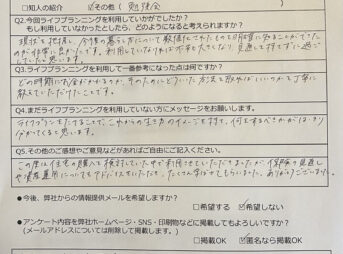 □知人の紹介 ☑その他(勉強会
Q2.今回ライフプランニングを利用していかがでしたか?
もし利用していなかったとしたら、どのようになると考えられますか?
現状を把握し、今後の暮らし方について数値化されたものを明確に知ることができた
のが非常に良かったです。利用していなければ不安も大きくなり、見直しも持てずに過ごし
ていたと思います。
Q3.ライフプランニングを利用して一番参考になった点は何ですか?
どの時期にお金がかかるのか、そのためにどういった方法を取ればいいのかを丁寧に
教えていただけたことです。
Q4.まだライフプランニングを利用していない方にメッセージをお願いします。
ライフプランをたてることで、これからの生き方のイメージを持て、何をするべきかがはっきり
分かってくると思います。
Q5.その他のご感想やご意見などがあればご自由にご記入ください。
この度は住宅の購入を検討していた中で利用させていただきましたが、保険の見直し
や資産運用についてもアドバイスをいただき、たくさん学ばさせてもらいました。ありがとうございます。
●今後、弊社からの情報提供メールを希望しますか?
□希望する ☑希望しない
●アンケート内容を弊社ホームページ・SNS・印刷物などに掲載してもよろしいですか?
(メールアドレスについては削除して掲載します。)
□掲載OK ☑匿名なら掲載OK